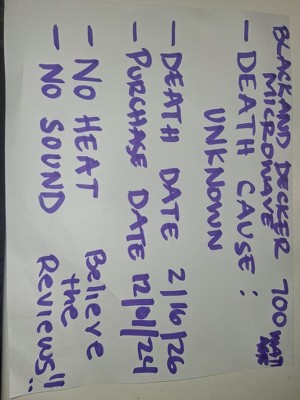 BLACK AND DECKER 700 WATT
MICROWAVE
- DEATH CAUSE:
UNKNOWN
- DEATH DATE 2/16/26
- PURCHASE DATE 12/01/24
- NO HEAT
- NO SOUND
Believe
the
Reviews!!..